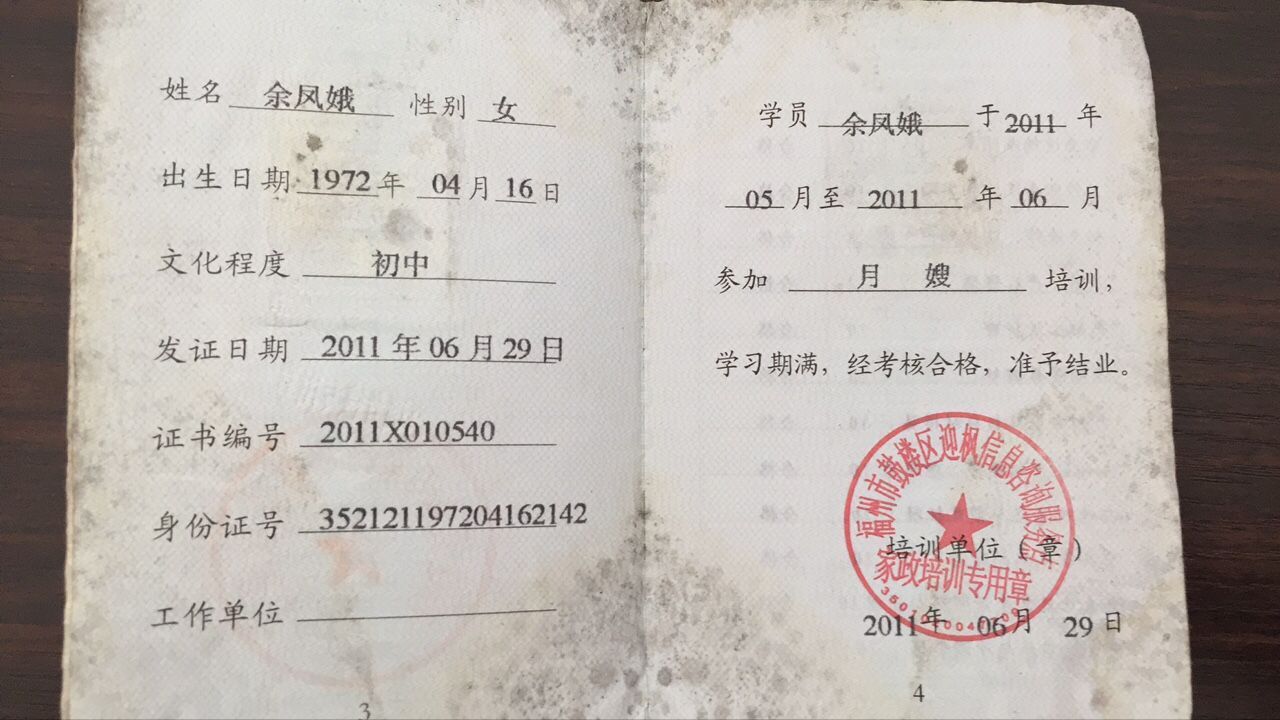 姓名 余凤娥 性别 女
出生日期 1972 年 04 月 16 日
文化程度 初中
发证日期 2011 年 06 月 29 日
证书编号 2011X010540
身份证号 352121197204162142
工作单位
3
学员 余凤娥 于 2011 年
05 月至 2011 年 06 月
参加 月 嫂 培训，
学习期满，经考核合格，准予结业。
福州市鼓楼区迎枫信息咨询服务站
培训单位（章）
家政培训专用章
2011 年 06 月 29 日
4